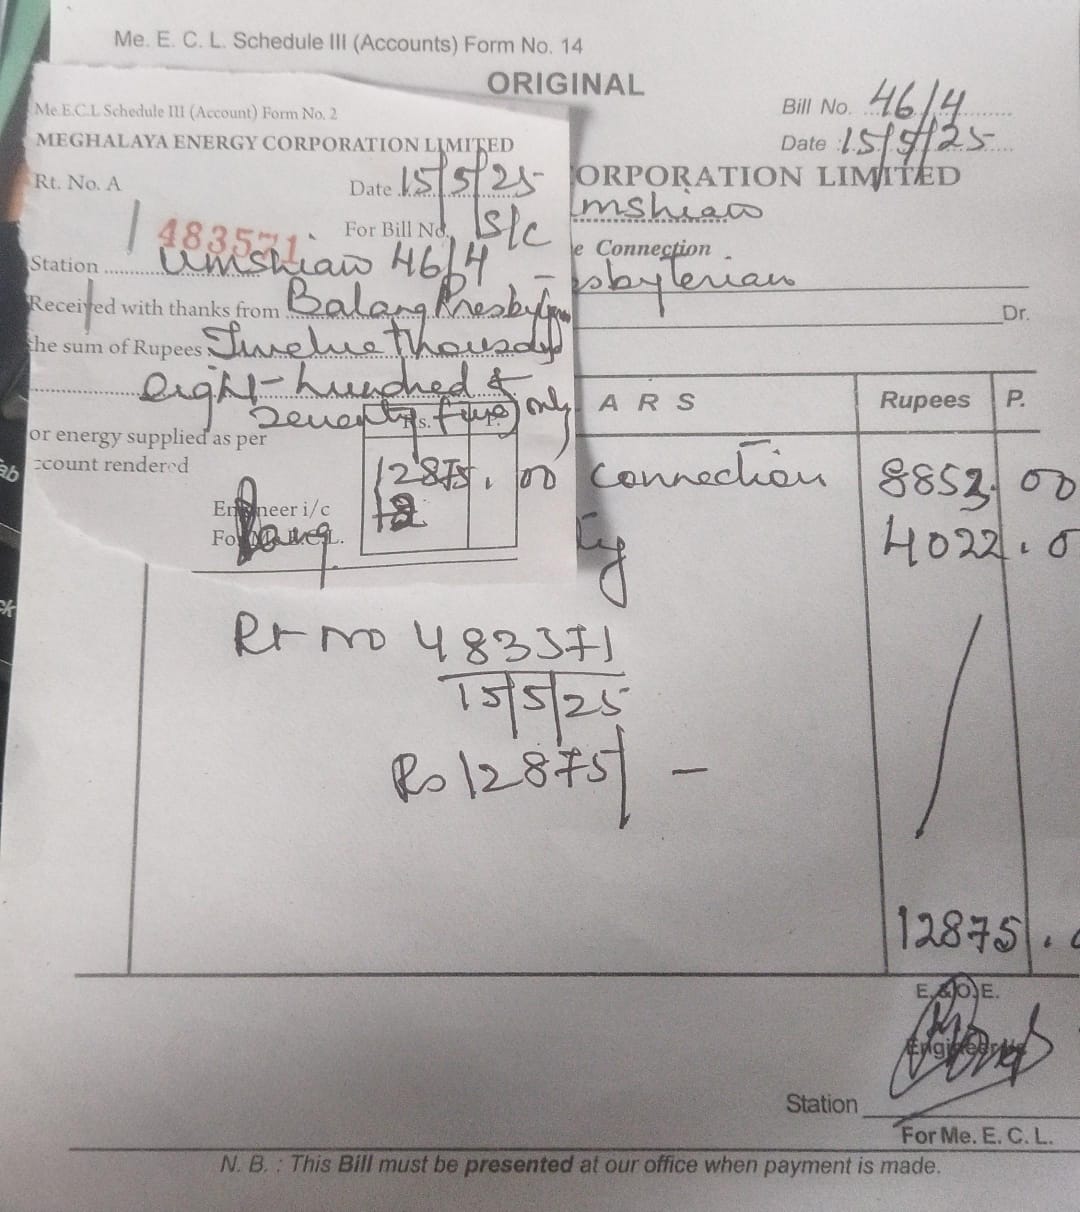 Me. E. C. L. Schedule III (Accounts) Form No. 14
ORIGINAL
Bill No. 46/4
Date 15/5/25
ORPORATION LIMITED
Umshiaw
e Connection
esbyterian
Dr.
A R S Rupees P.
connection 8853.00
ty 4022.0
Rt no 483371
15/5/25
Rs 12875/-
12875.
E.&O.E.
Engineer
Station
For Me. E. C. L.
N. B. : This Bill must be presented at our office when payment is made.
Me.E.C.L Schedule III (Account) Form No. 2
MEGHALAYA ENERGY CORPORATION LIMITED
Rt. No. A Date 15/5/25
483571 For Bill No. S/c
Station Umshiaw 46/4
Received with thanks from Balang Presbyterian
the sum of Rupees Twelve thousand
eight hundred &
Seventy five only
Rs. P.
or energy supplied as per
ccount rendered
12875.00
Engineer i/c
For M.E.C.L.